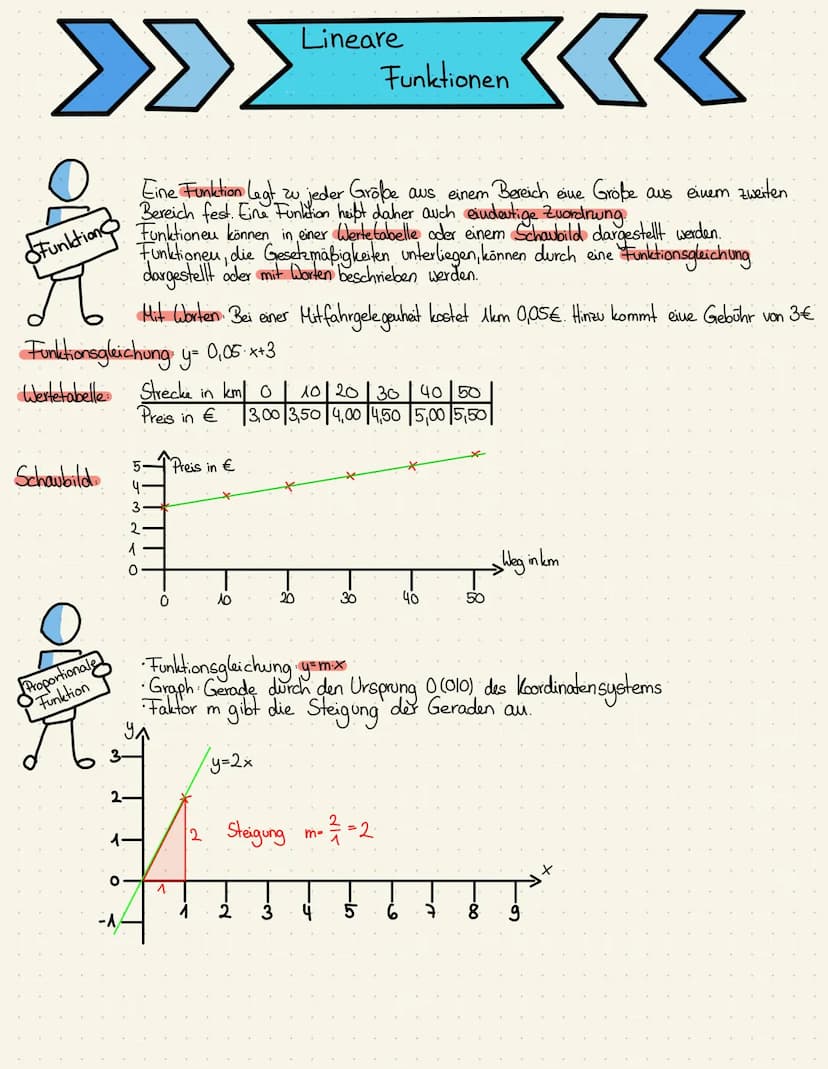 Lineare
Funktionen
Funktion
Eine Funktion legt zu jeder Größe aus einem Bereich eine Größe aus einem zweiten
Bereich fest. Eine Funktion heißt daher auch eindeutige Zuordnung
Funktionen können in einer Wertetabelle oder einem Schaubild dargestellt werden.
Funktionen, die Gesetzmäßigkeiten unterliegen, können durch eine Funktionsgleichung
dargestellt oder mit Worten beschrieben werden.
Mit Worten: Bei einer Mitfahrgelegenheit kostet 1km 0,05€. Hinzu kommt eine Gebühr von 3€
Funktionsgleichung: y= 0,05·x+3
Wertetabelle: Strecke in km 0 10 20 30 40 50
Preis in € 3,00 3,50 4,00 4,50 5,00 5,50
Schaubild:
Preis in €
5
4
3
2
1
0
Weg in km
0 10 20 30 40 50
Proportionale
Funktion
· Funktionsgleichung: y=m·x
· Graph: Gerade durch den Ursprung O(0|0) des Koordinatensystems
· Faktor m gibt die Steigung der Geraden an.
y
3
y=2x
2
2 Steigung m= 2/1 = 2
1
0
1
x
1 2 3 4 5 6 7 8 9
-1